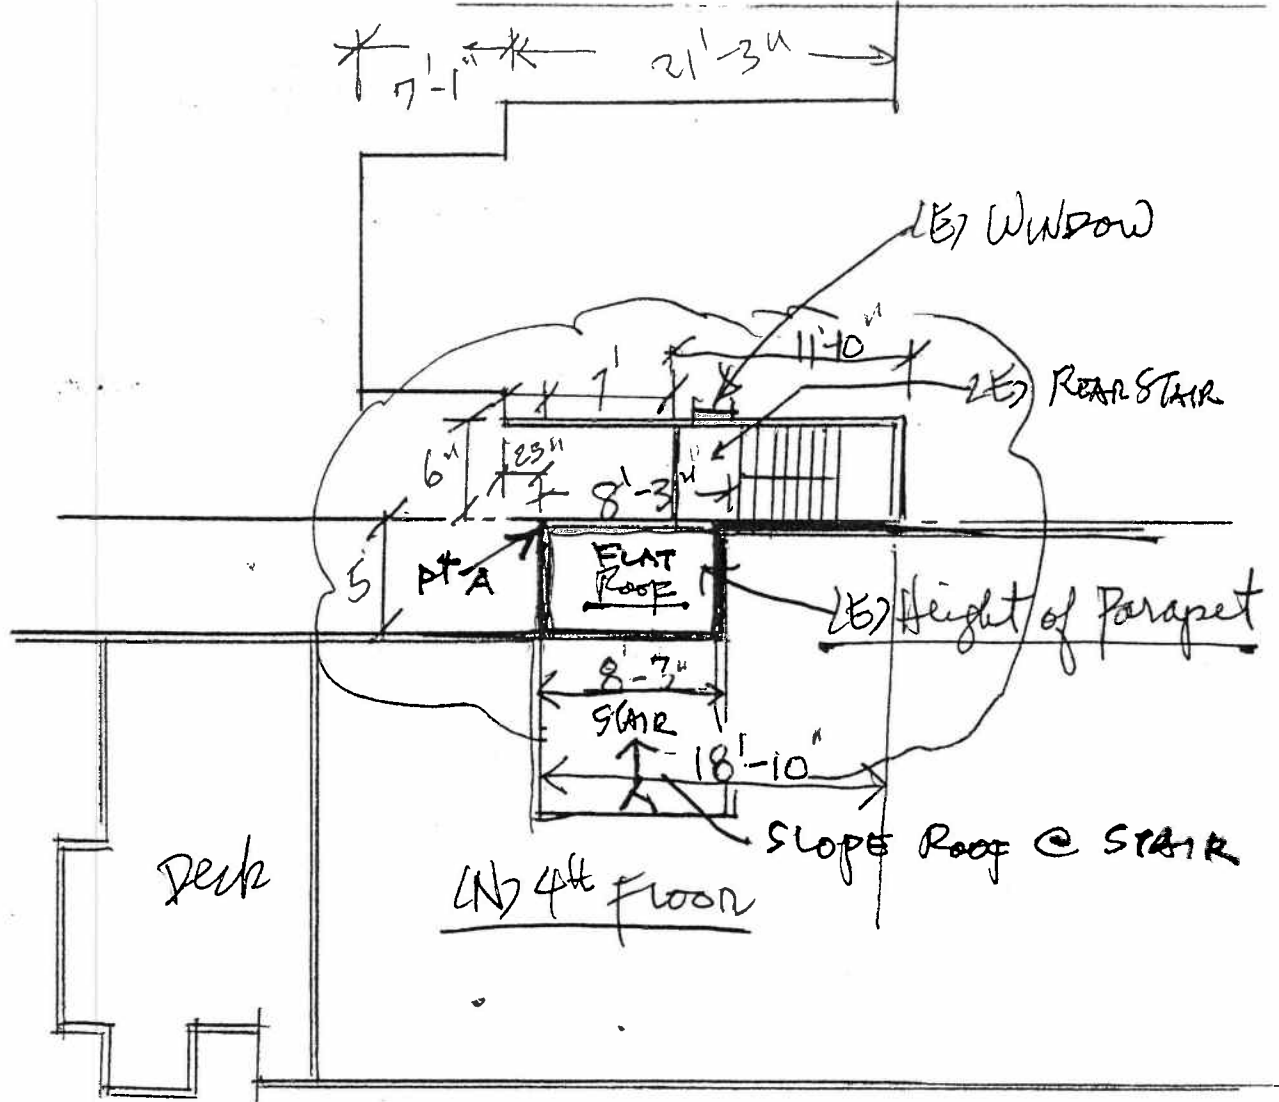 7'-1"
21'-3"
(E) WINDOW
11'-10"
7'
(E) REAR STAIR
6"
23"
8'-3"
FLAT
ROOF
pt A
5'
(E) Height of Parapet
8'-3"
STAIR
18'-10"
SLOPE ROOF @ STAIR
Deck
(N) 4th FLOOR